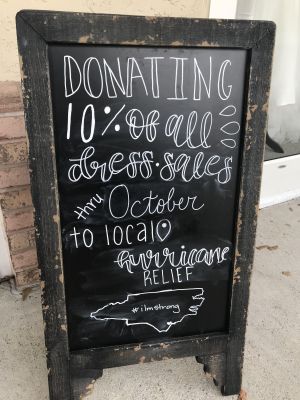 DONATING
10% of all
dress sales
thru October
to local
hurricane
RELIEF
#ilmstrong